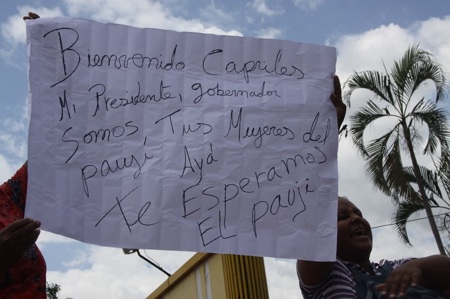 Bienvenido Capriles
Mi Presidente, gobernador
Somos Tus Mujeres del
paují Ayá
Te Esperamos
El pauji